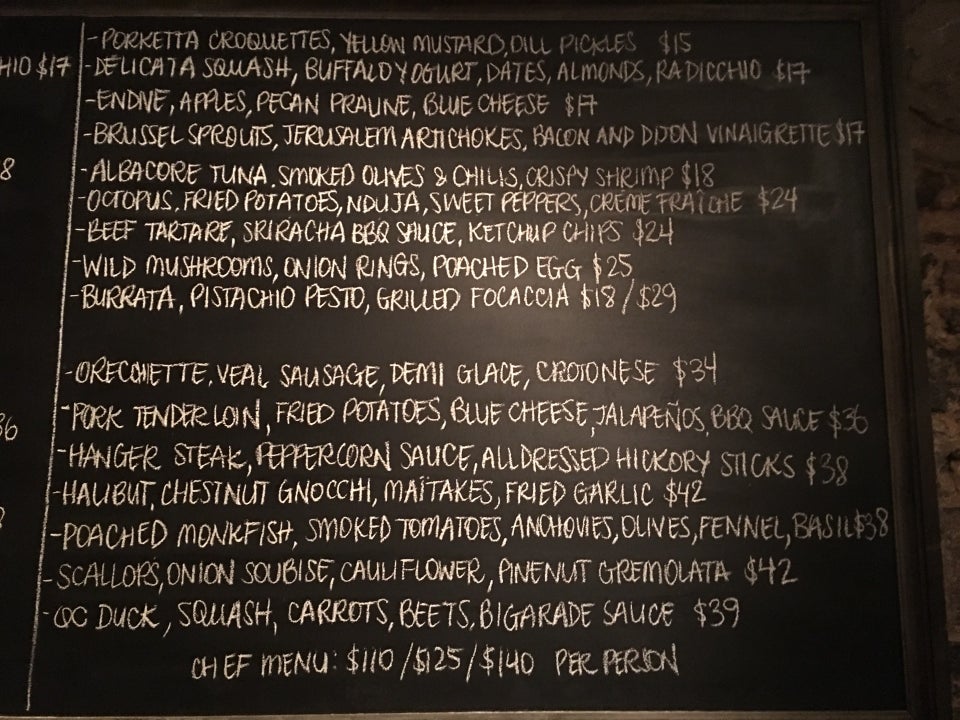 -PORKETTA CROQUETTES, YELLOW MUSTARD, DILL PICKLES $15
HIO $17
-DELICATA SQUASH, BUFFALO YOGURT, DATES, ALMONDS, RADICCHIO $17
-ENDIVE, APPLES, PECAN PRALINE, BLUE CHEESE $17
-BRUSSEL SPROUTS, JERUSALEM ARTICHOKES, BACON AND DIJON VINAIGRETTE $17
8
-ALBACORE TUNA, SMOKED OLIVES & CHILIS, CRISPY SHRIMP $18
-OCTOPUS, FRIED POTATOES, NDUJA, SWEET PEPPERS, CREME FRAICHE $24
-BEEF TARTARE, SRIRACHA BBQ SAUCE, KETCHUP CHIPS $24
-WILD MUSHROOMS, ONION RINGS, POACHED EGG $25
-BURRATA, PISTACHIO PESTO, GRILLED FOCACCIA $18/$29
-ORECCHIETTE, VEAL SAUSAGE, DEMI GLACE, CROTONESE $34
36
-PORK TENDERLOIN, FRIED POTATOES, BLUE CHEESE, JALAPEÑOS, BBQ SAUCE $36
-HANGER STEAK, PEPPERCORN SAUCE, ALLDRESSED HICKORY STICKS $38
-HALIBUT, CHESTNUT GNOCCHI, MAÏTAKES, FRIED GARLIC $42
-POACHED MONKFISH, SMOKED TOMATOES, ANCHOVIES, OLIVES, FENNEL, BASIL $38
-SCALLOPS, ONION SOUBISE, CAULIFLOWER, PINENUT GREMOLATA $42
-QC DUCK, SQUASH, CARROTS, BEETS, BIGARADE SAUCE $39
CHEF MENU: $110/$125/$140 PER PERSON